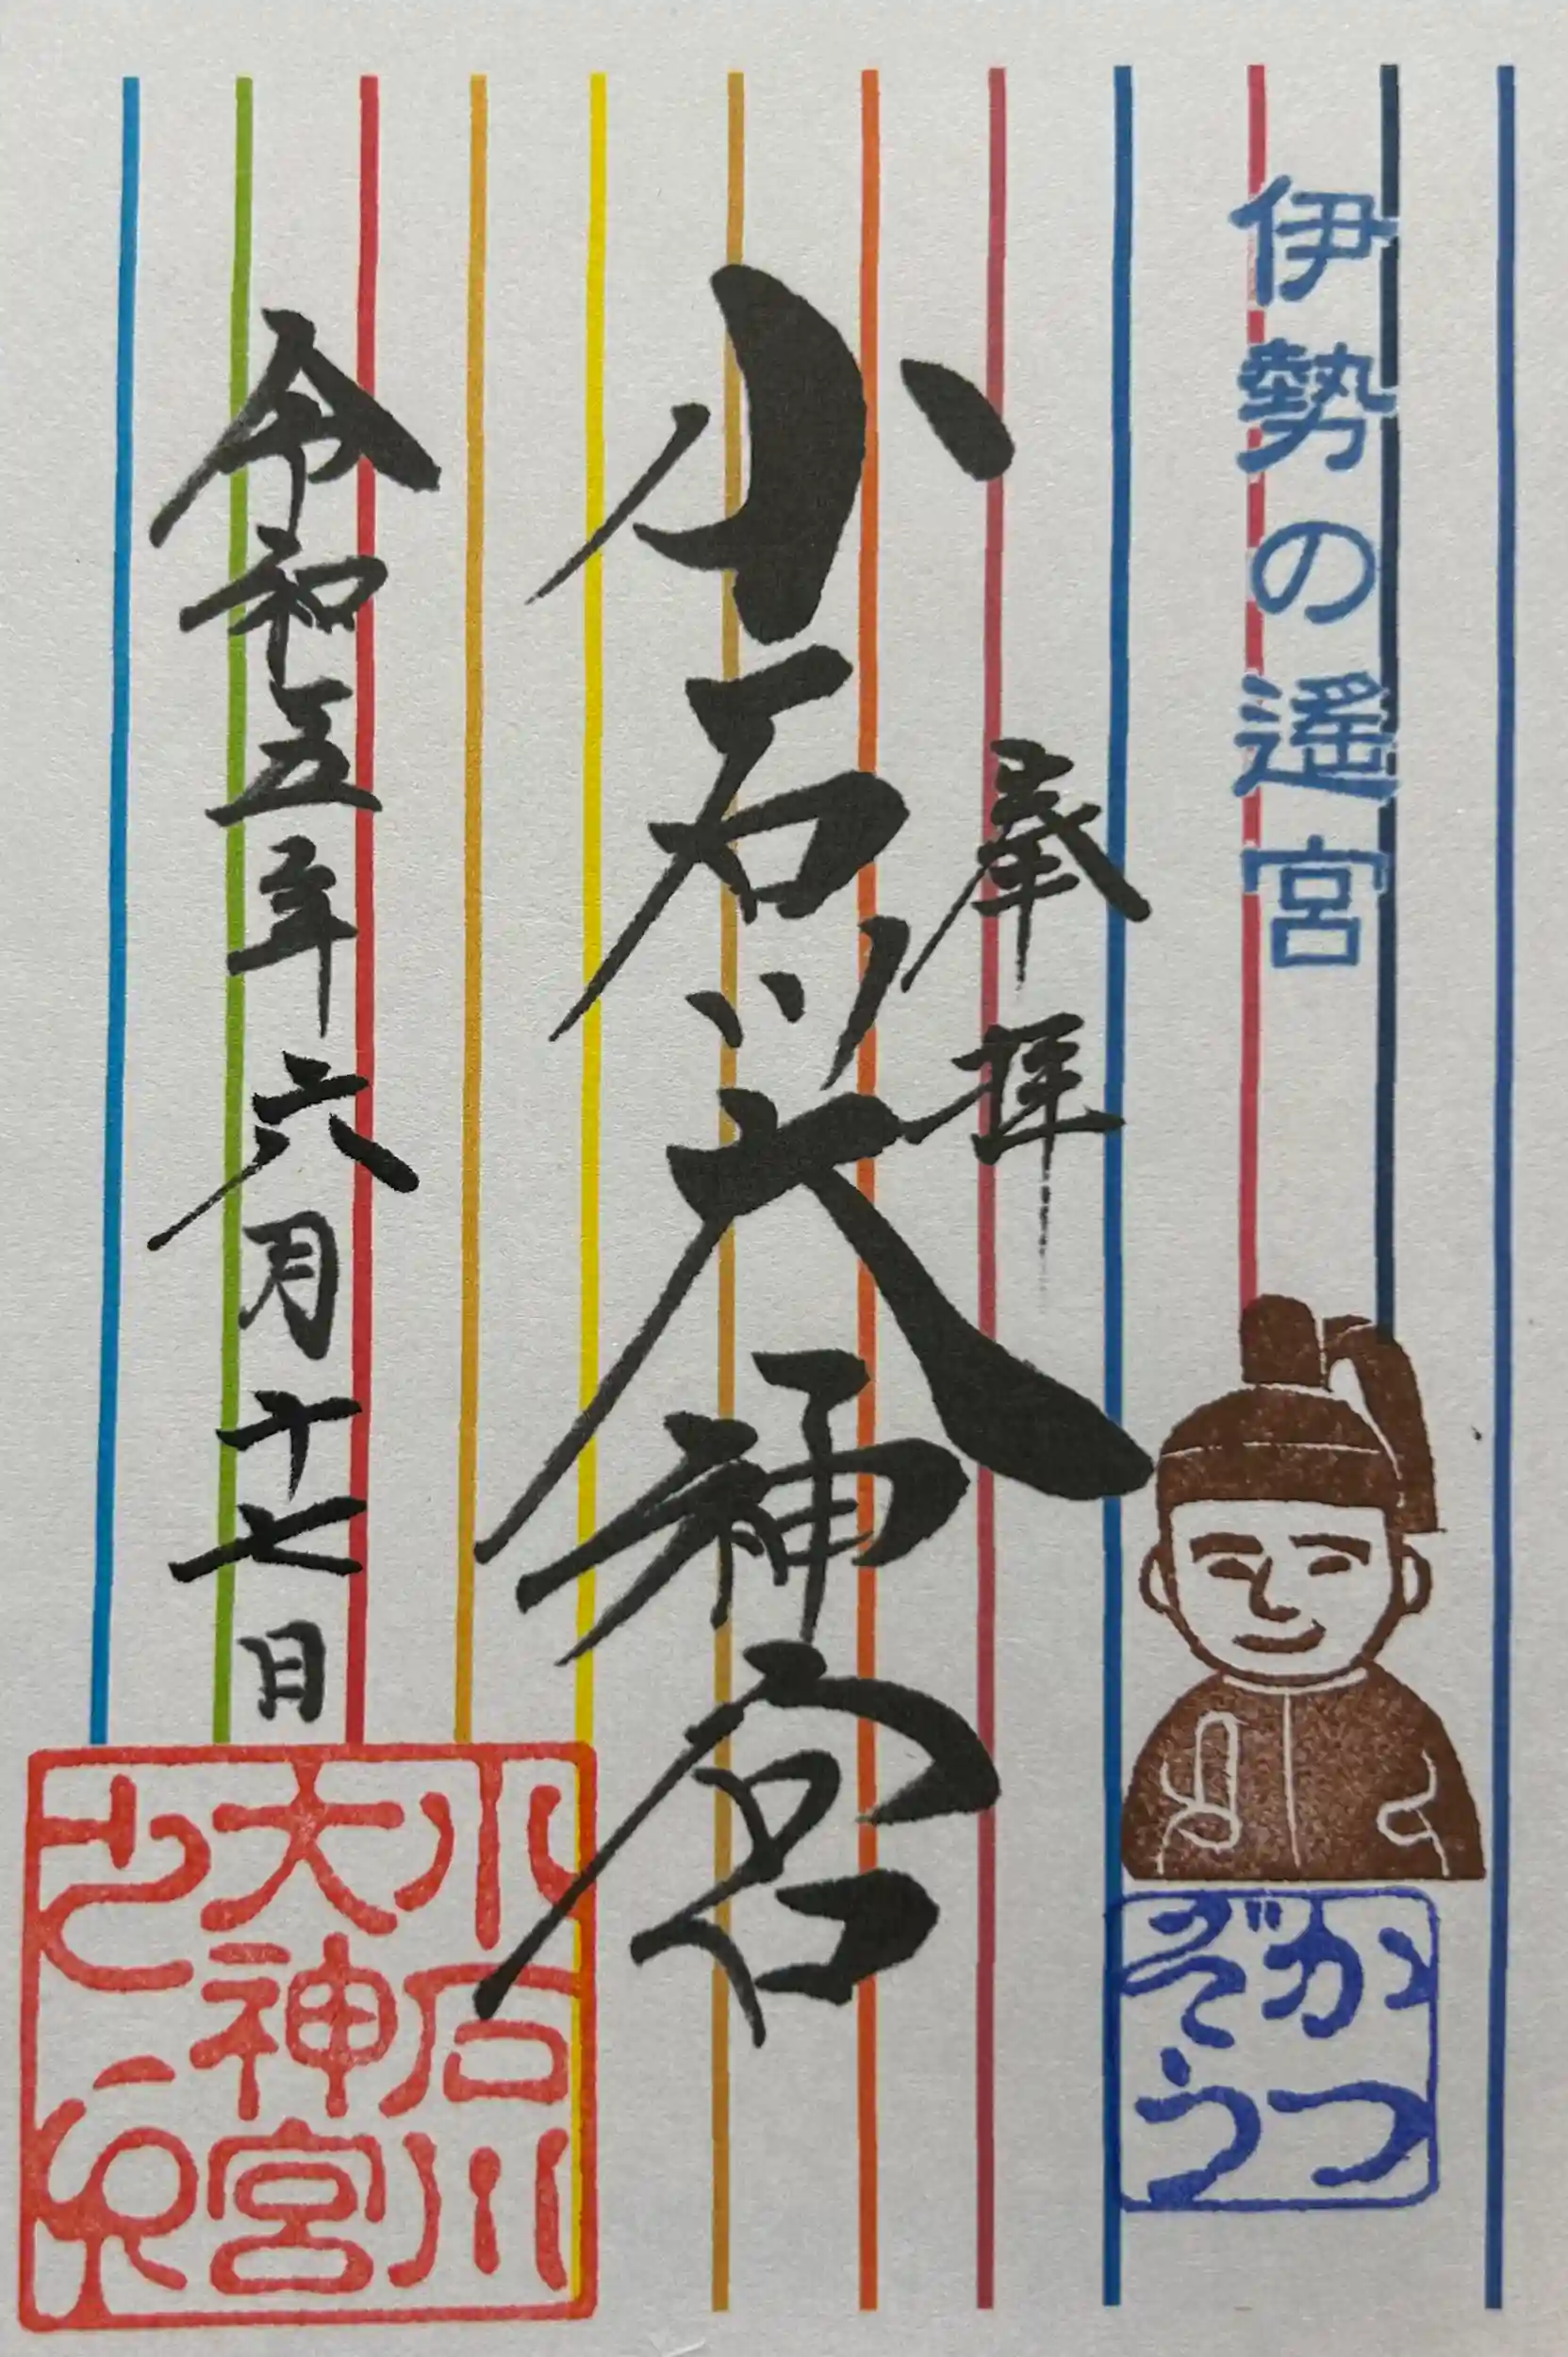 伊勢の遥宮
かつ
ぞう
奉拝
小石川大神宮
令和五年六月十七日
小石川
大神宮
之印